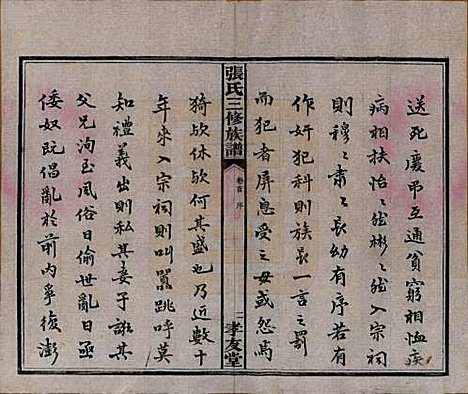 送死慶弔互通貧窮相恤疾
病相扶怡〻然彬〻然入宗祠
則穆〻肅〻長幼有序若有
作奸犯科則族長一言之罰
而犯者屏息受之毋或怨焉
張氏三修族譜
卷首 序
二
孝友堂
猗歟休歟何其盛也乃近數十
年來入宗祠則叫囂跳呼莫
知禮義出則私其妻子詬其
父兄洵至風俗日偷世亂日亟
倭奴既倡亂於前內爭復澎